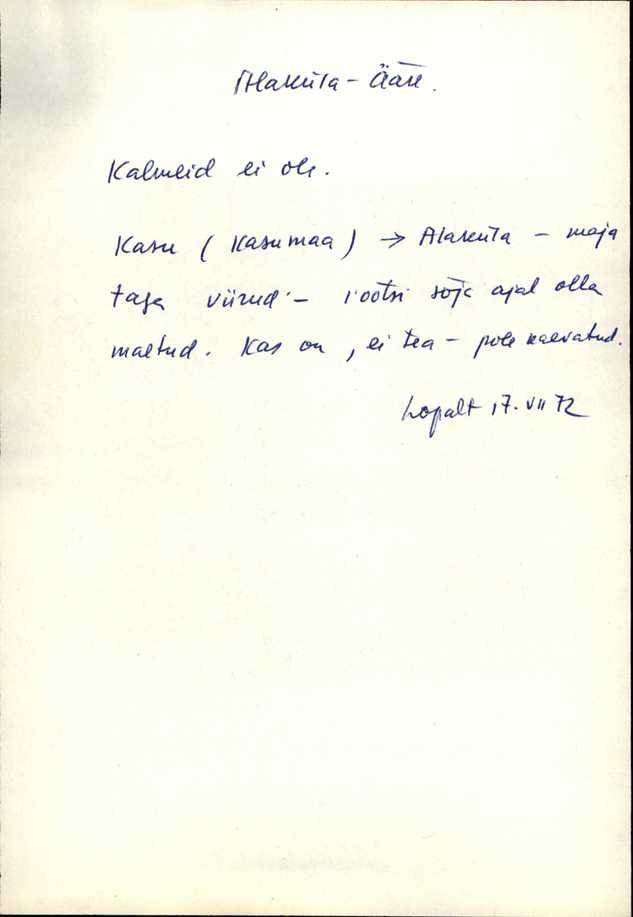 Alaküla - Ääre.
Kalmeid ei ole.
Kasu (Kasumaa) → Alaküla - maja
taga viirud - rootsi sõja ajal olla
maetud. Kas on, ei tea - pole kaevatud.
17. VII 72